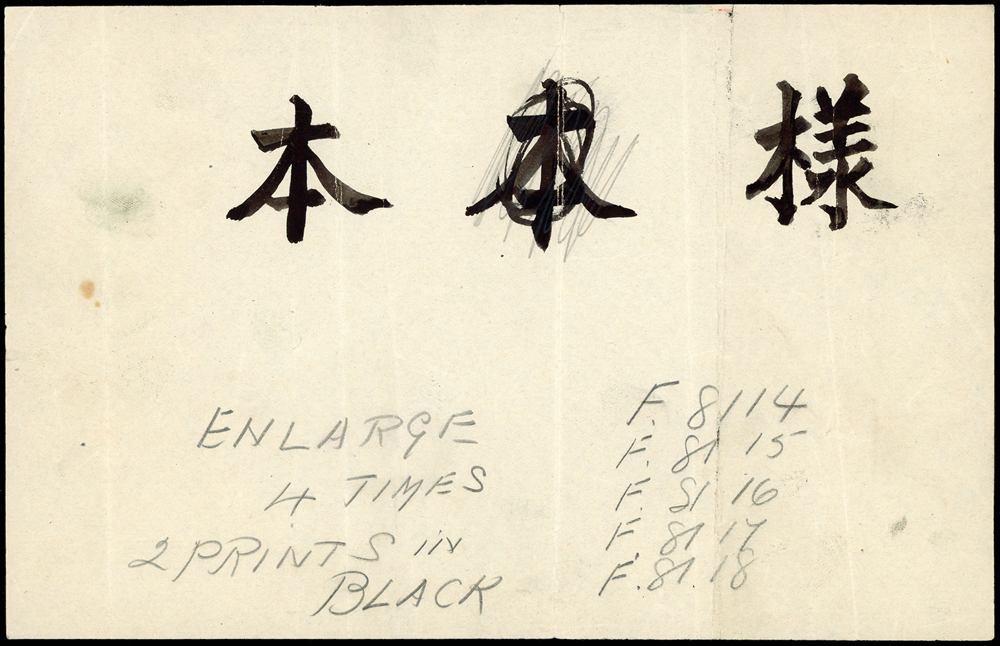 本 本 様
ENLARGE
4 TIMES
2 PRINTS in
BLACK
F. 8114
F. 8115
F. 8116
F. 8117
F. 8118